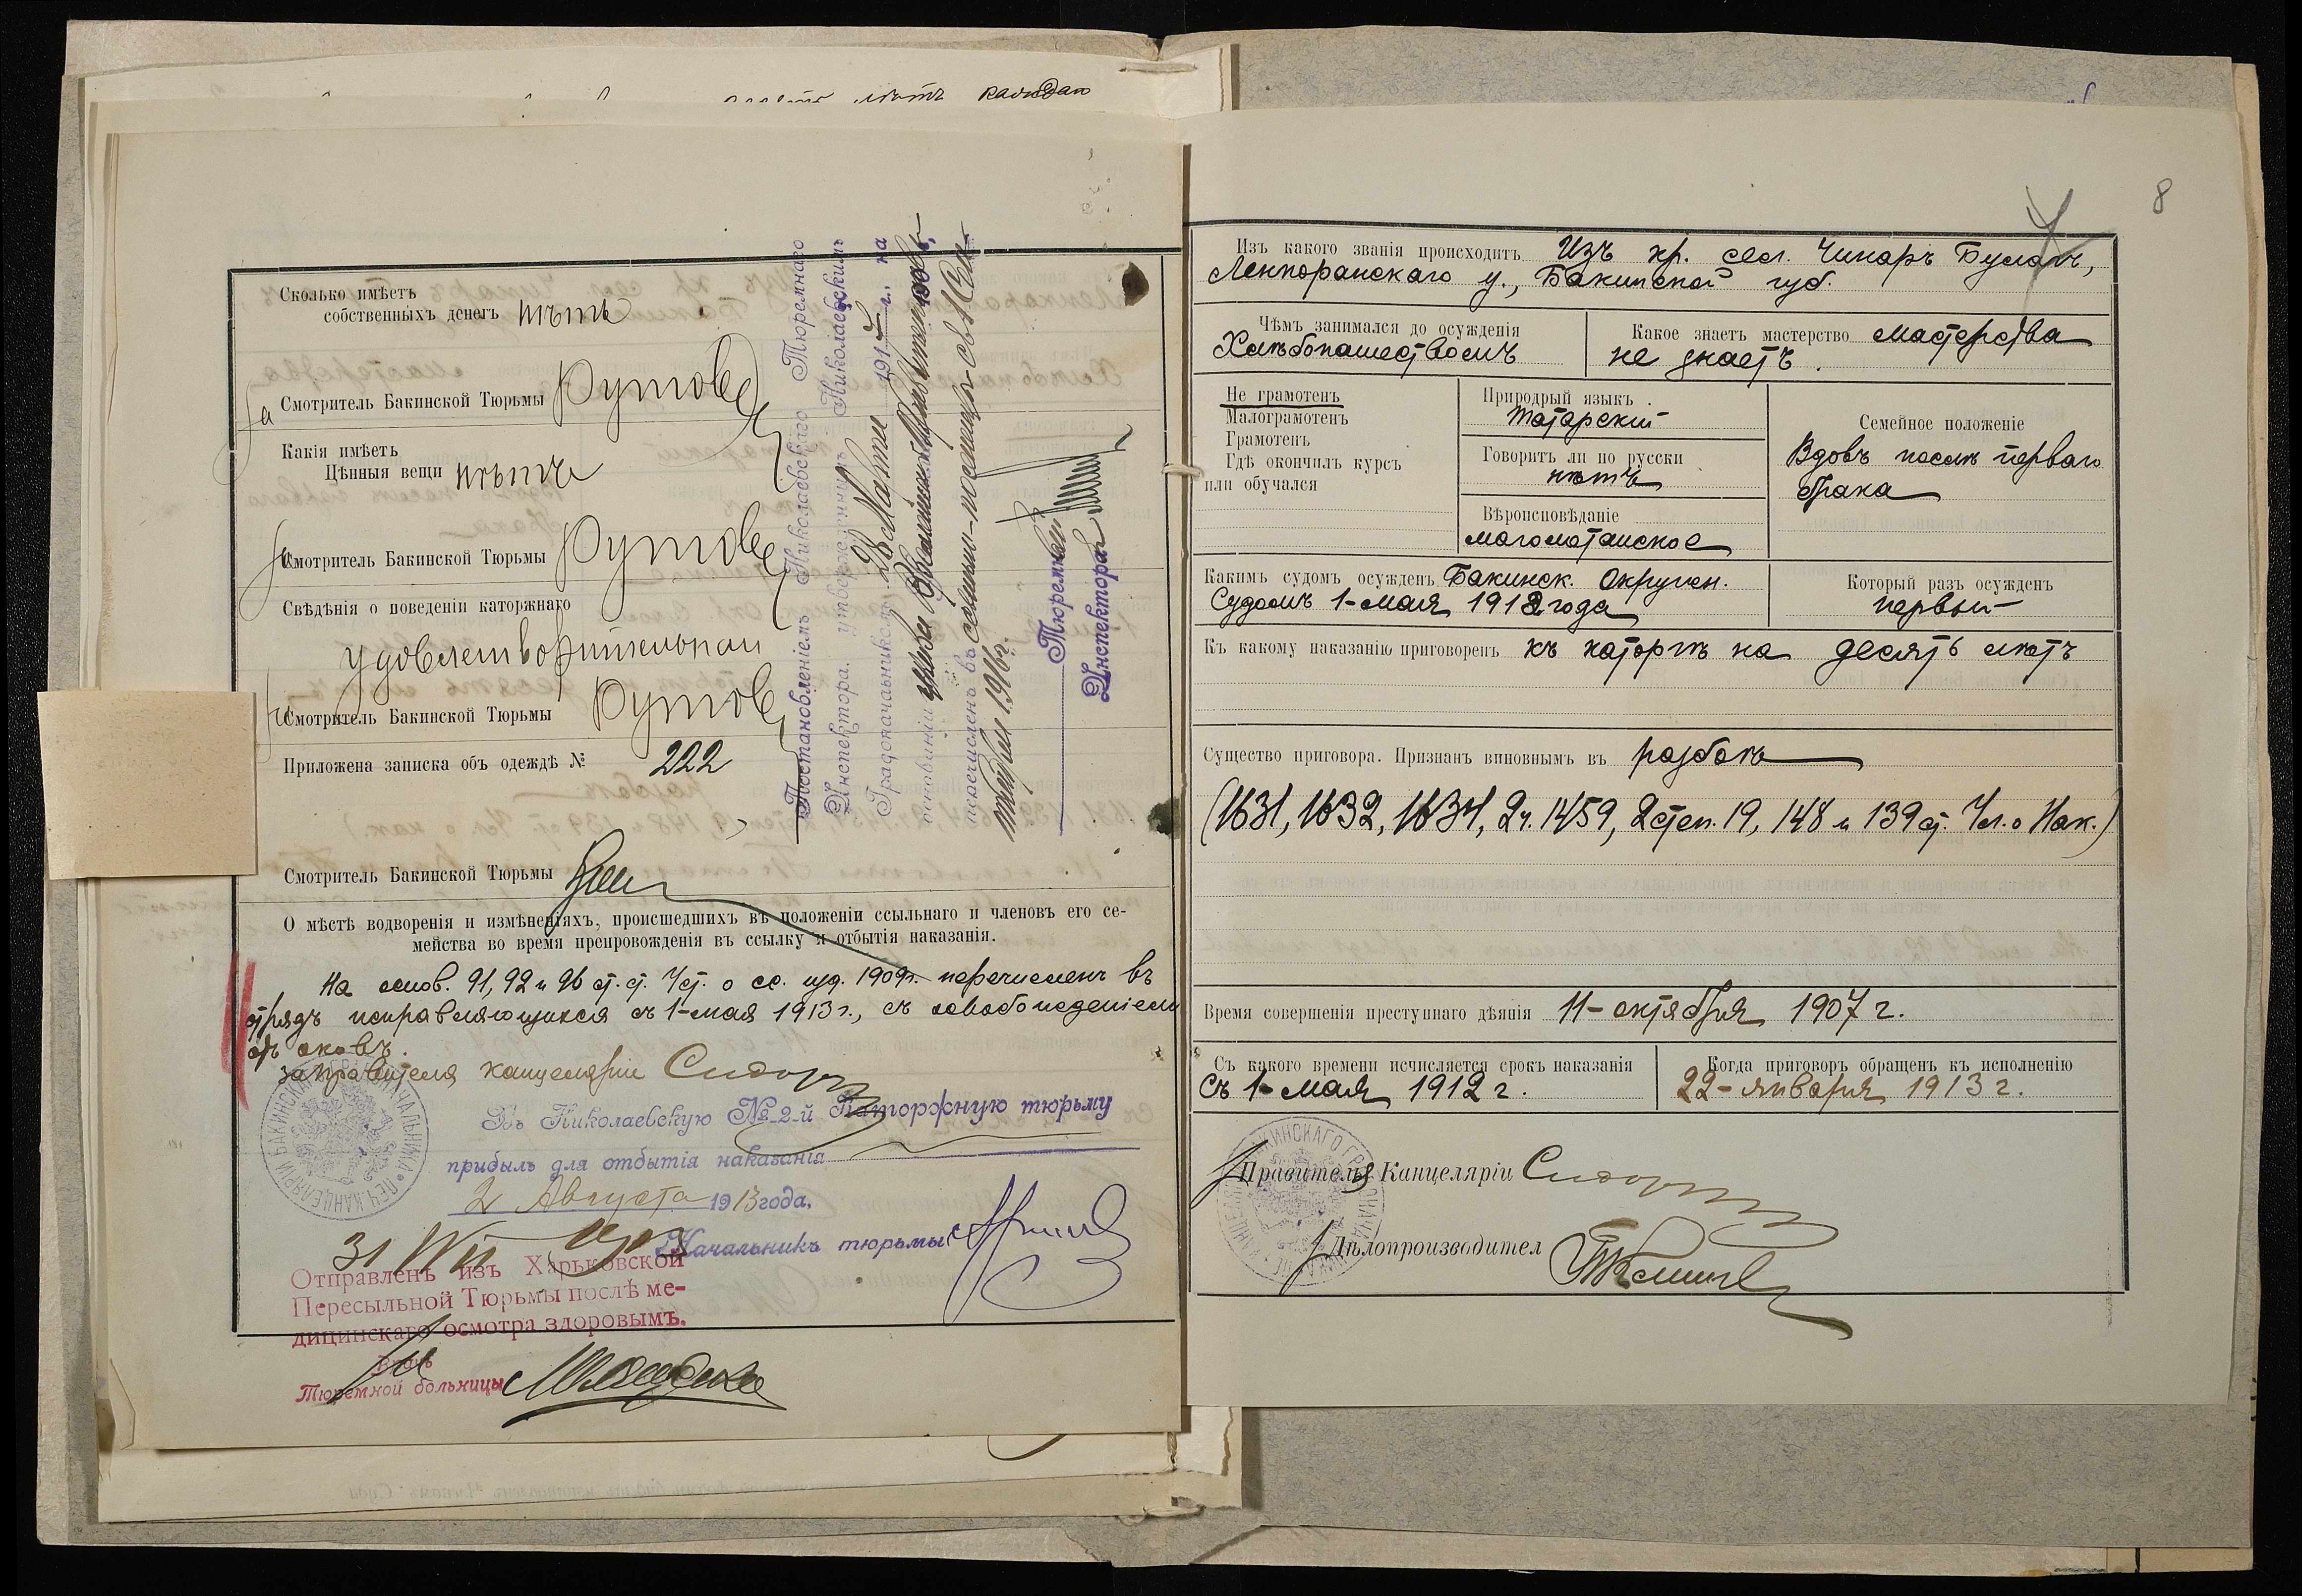 лѣтъ
Сколько имѣетъ
собственныхъ денегъ нѣтъ
За Смотритель Бакинской Тюрьмы
Какія имѣетъ
Цѣнныя вещи нѣтъ
За Смотритель Бакинской Тюрьмы
Свѣдѣнія о поведеніи каторжнаго
удовлетворительнаго
За Смотритель Бакинской Тюрьмы
Приложена записка объ одеждѣ № 222
Смотритель Бакинской Тюрьмы
О мѣстѣ водворенія и измѣненіяхъ, происшедшихъ въ положеніи ссыльнаго и членовъ его се-
мейства во время препровожденія въ ссылку и отбытія наказанія.
На основ. 91, 92 и 96 ст. ст. Уст. о сс. изд. 1909 г. перечисленъ въ
отрядъ исправляющихся съ 1-мая 1913 г., съ освобожденіемъ
отъ оковъ.
За Правителя канцеляріи
Въ Николаевскую № 2-й Каторжную тюрьму
прибылъ для отбытія наказанія
2 Августа 1913 года.
Начальникъ тюрьмы
31 VII
Отправленъ изъ Харьковской
Пересыльной Тюрьмы послѣ ме-
дицинскаго осмотра здоровымъ.
Врачъ
Тюремной больницы
Постановленіемъ Николаевскаго Тюремнаго
Инспектора, утвержденнымъ Николаевскимъ
Градоначальникомъ 28 Марта 191 г., на
основаніи
перечисленъ въ
1916 г.
Тюремный
Инспекторъ
8
Изъ какого званія происходитъ Изъ кр. сел. Чинаръ Булахъ,
Ленкоранскаго у., Бакинской губ.
Чѣмъ занимался до осужденія
Хлѣбопашествомъ
Какое знаетъ мастерство мастерства
не знаетъ.
Не грамотенъ
Малограмотенъ
Грамотенъ
Гдѣ окончилъ курсъ
или обучался
Природный языкъ
татарскій
Говоритъ ли по русски
нѣтъ
Вѣроисповѣданіе
магометанское
Семейное положеніе
Вдовъ послѣ перваго
брака
Какимъ судомъ осужденъ Бакинск. Окружн.
Судомъ 1-мая 1912 года
Который разъ осужденъ
первый
Къ какому наказанію приговоренъ къ каторгѣ на десять лѣтъ
Существо приговора. Признанъ виновнымъ въ разбоѣ
(1631, 1632, 1634, 2 ч. 1459, 2 степ. 19, 148 и 139 ст. Ул. о Нак.)
Время совершенія преступнаго дѣянія 11-октября 1907 г.
Съ какого времени исчисляется срокъ наказанія
Съ 1-мая 1912 г.
Когда приговоръ обращенъ къ исполненію
22-января 1913 г.
Правителя Канцеляріи
Дѣлопроизводител